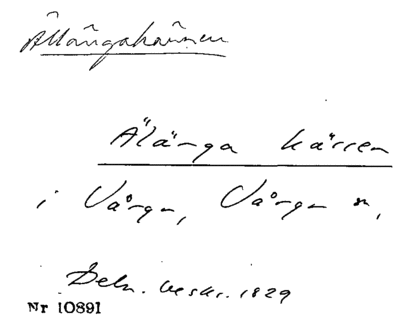 Ållångakärren
Älänga kärren
i Vårga, Vårga sn,
Deln. beskr. 1829
Nr 10891